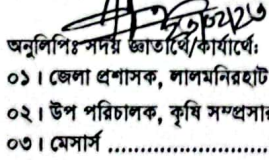 অনুলিপিঃ সদয় জ্ঞাতার্থে/কার্যার্থে:
০১। জেলা প্রশাসক, লালমনিরহাট
০২। উপ পরিচালক, কৃষি সম্প্রসার
০৩। মেসার্স ..............................